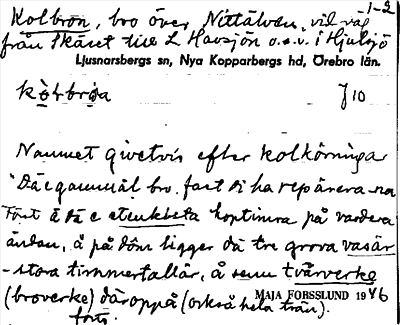 -1-2
Kolbron, bro över Nittälven, vid väg
från Skäret till L Havsjön o.s.v. i Hjulsjö
Ljusnarsbergs sn, Nya Kopparbergs hd, Örebro län.
kòlbròa J10
Namnet givetvis efter kolkörningar
"Dä e gammäl bro. fast di ha reparera na
Föst å dä e stenkista hoptimra på vardera
ändan, å på dôm ligger dä tre grova vasar
- stora timmertallär, å senn tvärverke
(broverke) däroppå (också hela trän).
forts.
MAJA FORSSLUND 1946